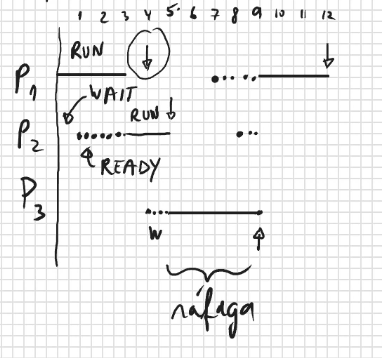 1 2 3 4 5 6 7 8 9 10 11 12
RUN
P1
WAIT
P2 RUN
READY
P3
W
ráfaga